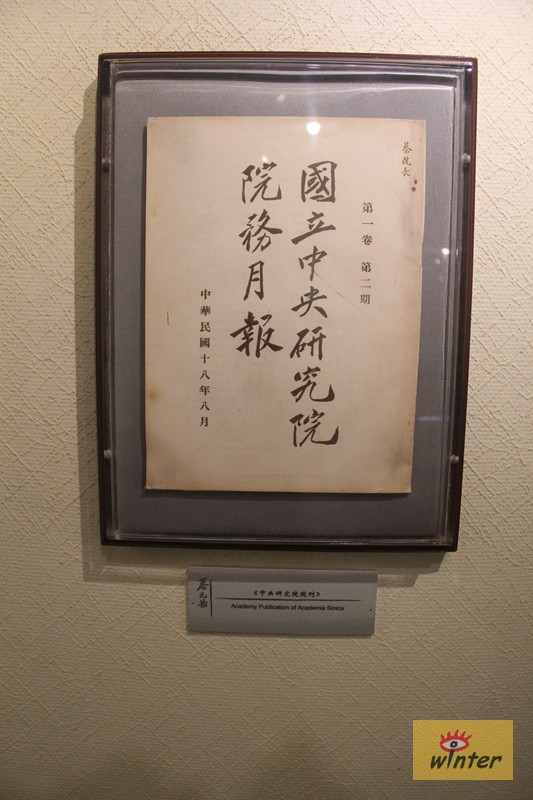 蔡院長
第一卷 第二期
國立中央研究院
院務月報
中華民國十八年八月
蔡元培
《中央研究院院刊》
Academy Publication of Academia Sinica
winter